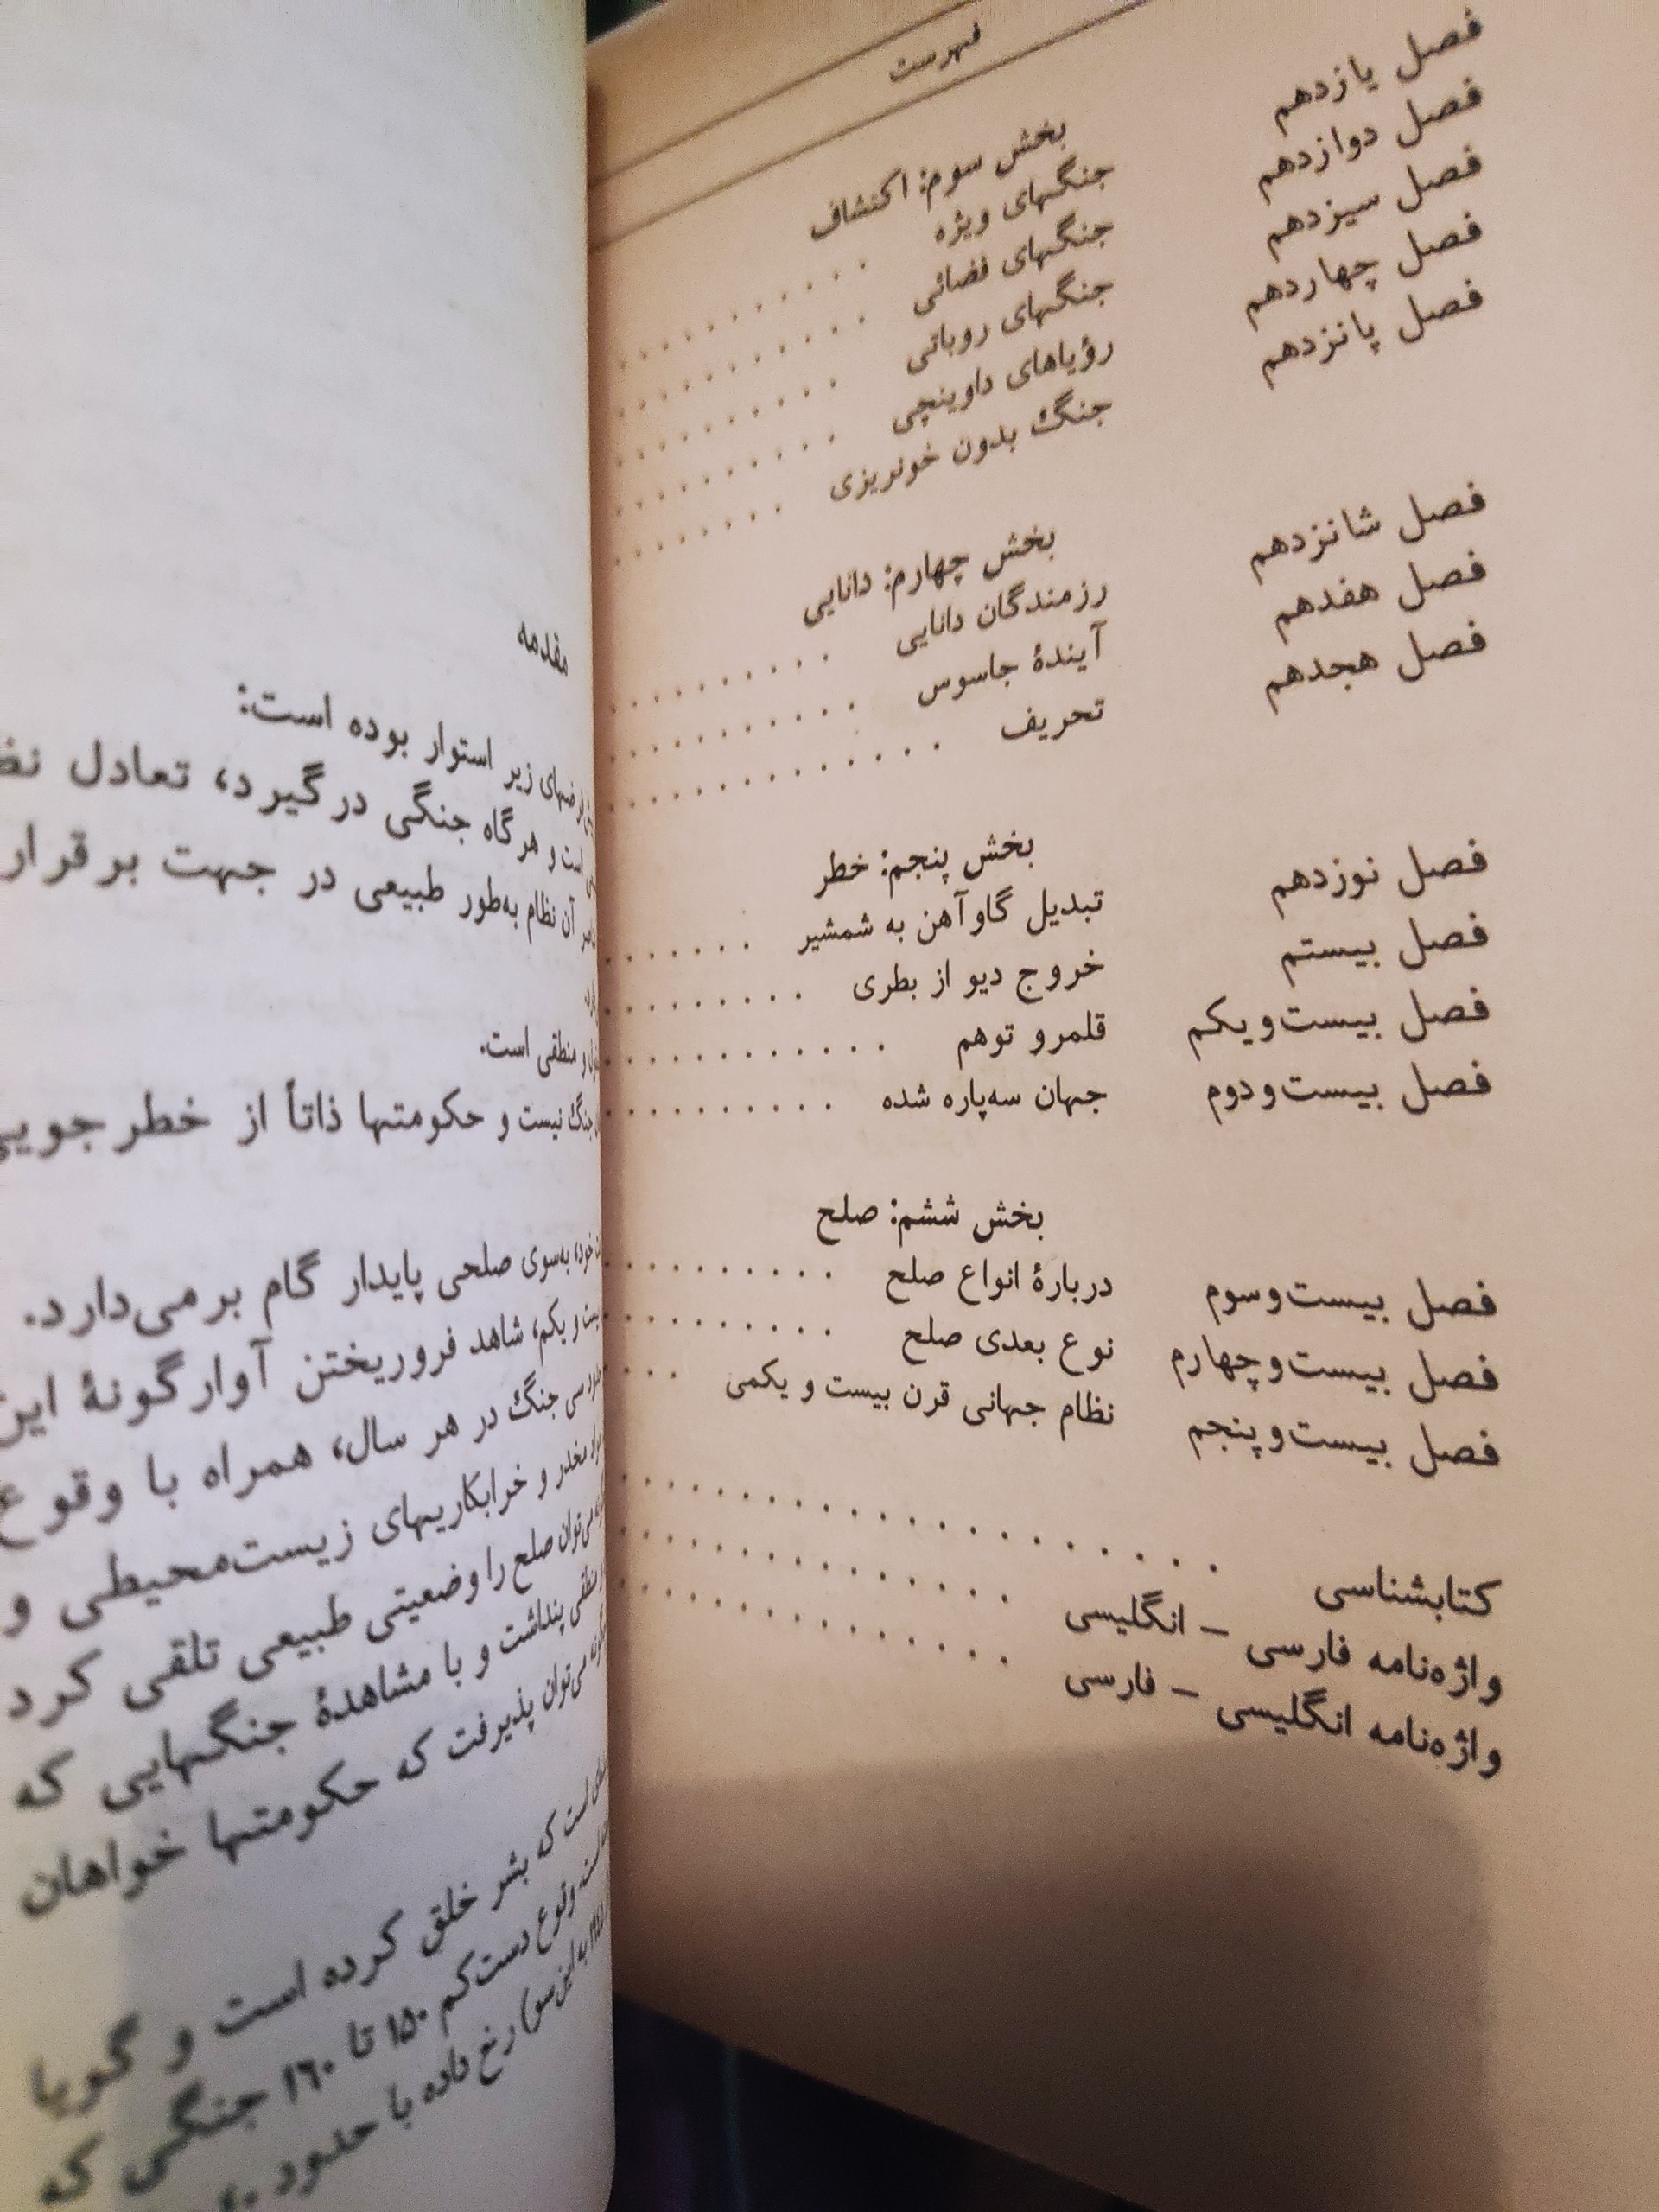 فهرست
بخش سوم: اکتشاف
فصل یازدهم جنگهای ویژه . . . . . . . . .
فصل دوازدهم جنگهای فضائی . . . . . . . . .
فصل سیزدهم جنگهای روباتی . . . . . . . . .
فصل چهاردهم رؤیاهای داوینچی . . . . . . . . .
فصل پانزدهم جنگ بدون خونریزی . . . . . . .
بخش چهارم: دانایی
فصل شانزدهم رزمندگان دانایی . . . . . . . . .
فصل هفدهم آیندهٔ جاسوس . . . . . . . . . .
فصل هجدهم تحریف . . . . . . . . . . . . .
بخش پنجم: خطر
فصل نوزدهم تبدیل گاوآهن به شمشیر . . . . . . .
فصل بیستم خروج دیو از بطری . . . . . . . . .
فصل بیست‌ویکم قلمرو توهم . . . . . . . . . . . .
فصل بیست‌ودوم جهان سه‌پاره شده . . . . . . . . . .
بخش ششم: صلح
فصل بیست‌وسوم دربارهٔ انواع صلح . . . . . . . . . .
فصل بیست‌وچهارم نوع بعدی صلح . . . . . . . . . .
فصل بیست‌وپنجم نظام جهانی قرن بیست و یکمی . . .
کتابشناسی . . . . . . . . . . . . . . . . . . . .
واژه‌نامه فارسی – انگلیسی . . . . . . . . . . . . . .
واژه‌نامه انگلیسی – فارسی . . . . . . . . . . . . . .
مقدمه
زیر استوار بوده است:
است و هرگاه جنگی درگیرد، تعادل
آن نظام به‌طور طبیعی در جهت برقرار
و منطقی است.
جنگ نیست و حکومتها ذاتاً از خطرجویی
خود، به‌سوی صلحی پایدار گام برمی‌دارد.
و یکم، شاهد فروریختن آوارگونهٔ این
سی جنگ در هر سال، همراه با وقوع
مخدر و خرابکاریهای زیست‌محیطی و
می‌توان صلح را وضعیتی طبیعی تلقی کرد
منطقی پنداشت و با مشاهدهٔ جنگهایی که
می‌توان پذیرفت که حکومتها خواهان
است که بشر خلق کرده است و گویا
وقوع دست‌کم ۱۵۰ تا ۱۶۰ جنگی که
به این‌سو) رخ داده با حدود